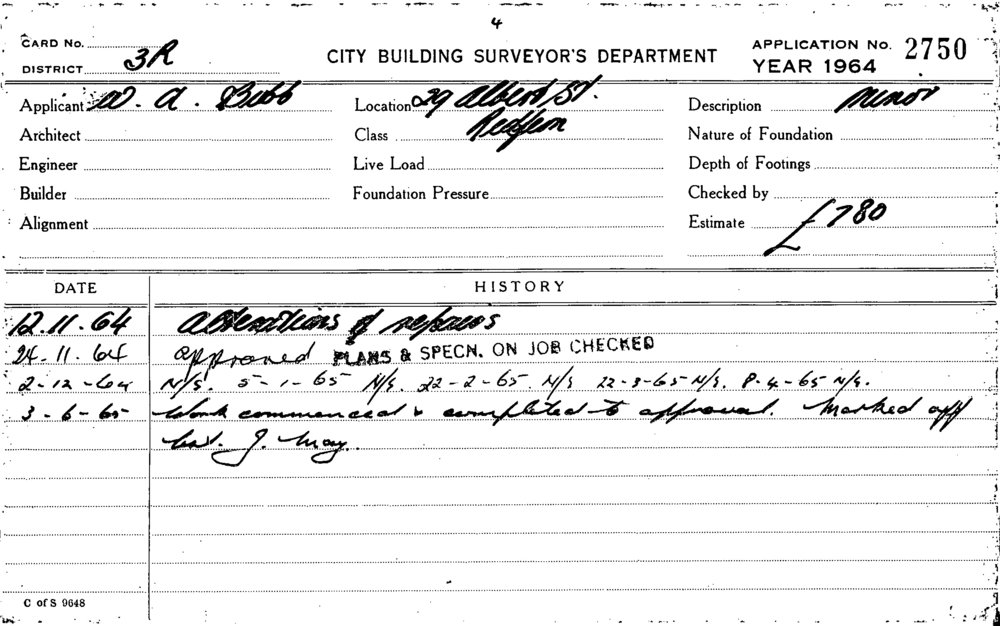 4
CARD No.
DISTRICT 3R
CITY BUILDING SURVEYOR'S DEPARTMENT
APPLICATION No. 2750
YEAR 1964
Applicant W. A. Bubb
Location 29 Albert St.
Description Minor
Architect
Class Redfern
Nature of Foundation
Engineer
Live Load
Depth of Footings
Builder
Foundation Pressure
Checked by
Alignment
Estimate £780
DATE HISTORY
12.11.64 Alterations & repairs
24.11.64 approved PLANS & SPECN. ON JOB CHECKED
2-12-64 N/S. 5-1-65 N/S. 22-2-65. N/S 22-3-65 N/S. 8-4-65 N/S.
3-6-65 Work commenced & completed to approval. Marked off
J. May.
C of S 9648